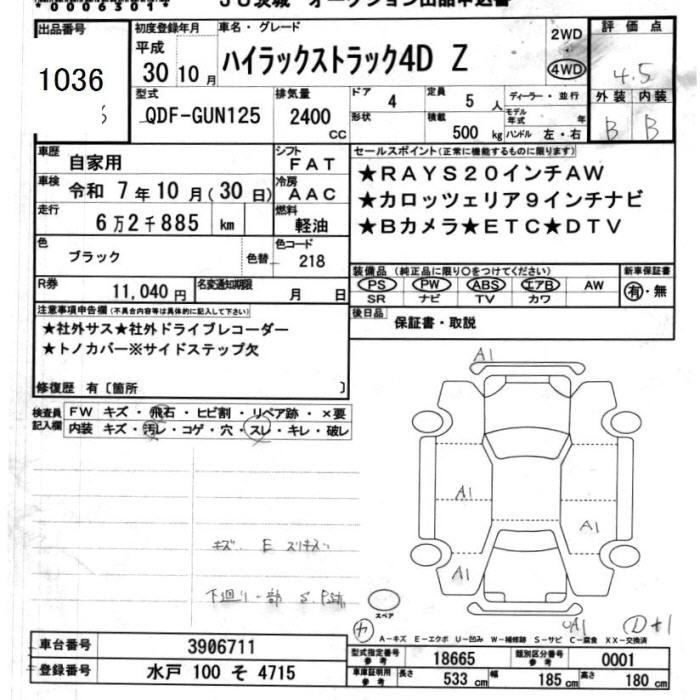 *00063014*
JU茨城 オークション出品申込書
出品番号
1036
初度登録年月
平成
30 10月
車名・グレード
ハイラックストラック4D Z
2WD
4WD
評価点
4.5
外装 内装
B B
型式
QDF-GUN125
排気量
2400
cc
ドア
4
定員
5人
形状
積載
500kg
ディーラー・並行
モデル年式 年
ハンドル 左・右
車歴
自家用
シフト
FAT
車検
令和 7年10月(30日)
冷房
AAC
走行
6万2千885 km
燃料
軽油
色
ブラック
色替
色コード
218
セールスポイント(正常に機能するものに限ります)
★RAYS20インチAW
★カロッツェリア9インチナビ
★Bカメラ★ETC★DTV
R券
11,040円
名変通知期限
月 日
装備品(純正品に限り〇をつけてください)
PS PW ABS エアB AW
SR ナビ TV カワ
新車保証書
有・無
注意事項申告欄(不具合内容等は具体的に記入して下さい)
★社外サス★社外ドライブレコーダー
★トノカバー※サイドステップ欠
修復歴 有〔箇所 〕
後日品
保証書・取説
検査員記入欄
FW キズ・飛石・ヒビ割・リペア跡・×要
内装 キズ・汚レ・コゲ・穴・スレ・キレ・破レ
A1
A1
A1
A1
キズ E スリキズ
下廻り一部 S.
スペア
A1
A-キズ E-エクボ U-凹み W-補修跡 S-サビ C-腐食 XX-交換済
車台番号
3906711
登録番号
水戸 100 そ 4715
型式指定番号
参考
18665
類別区分番号
参考
0001
車庫証明用
参考
長さ
533 cm
幅
185 cm
高さ
180 cm